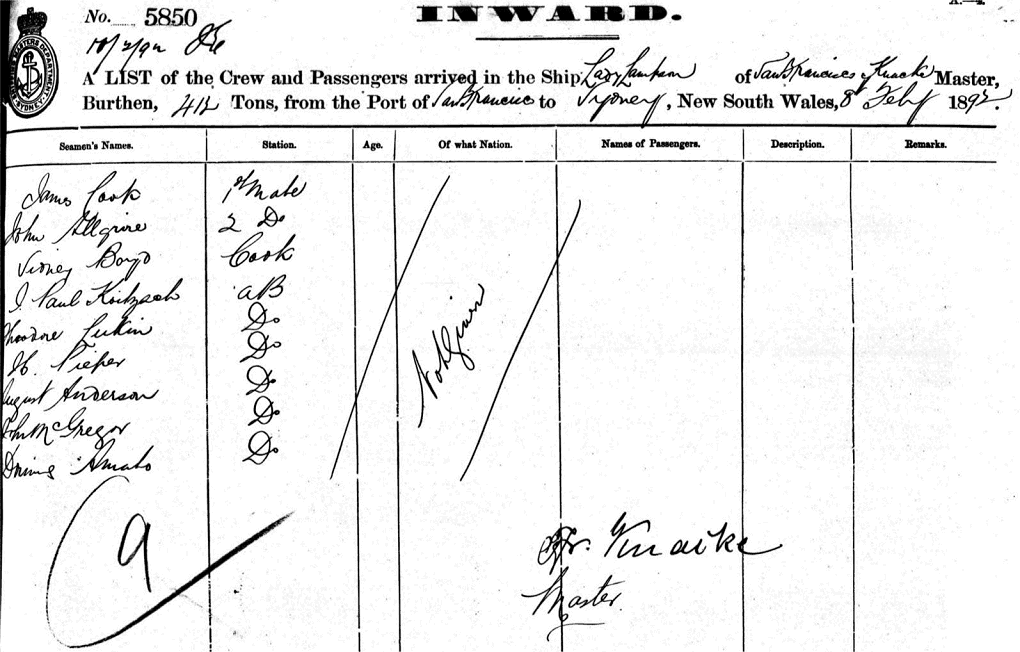 A.—4.
No. 5850 INWARD.
10/2/92
A LIST of the Crew and Passengers arrived in the Ship Lady Lampson of San Francisco, Knacke Master,
Burthen, 412 Tons, from the Port of San Francisco to Sydney, New South Wales, 8 Feby 1892.
Seamen's Names. Station. Age. Of what Nation. Names of Passengers. Description. Remarks.
James Cook 1st Mate
John Allgrove 2 Do
Sidney Boyd Cook
J. Paul Koitzsch AB
Theodore Do
H. Pieper Do
August Anderson Do
John McGregor Do
Amato Do
Not Given
9
Fr. Knacke
Master.